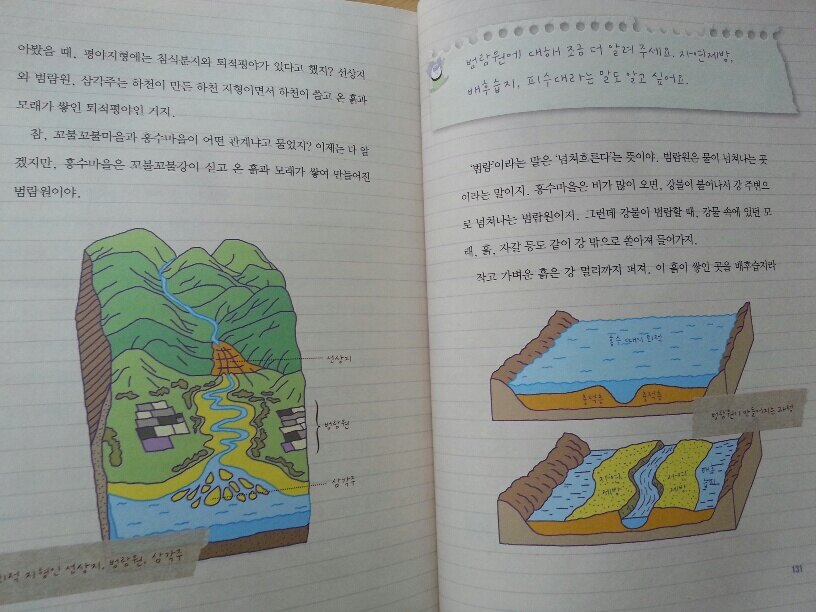 아봤을 때, 평야지형에는 침식분지와 퇴적평야가 있다고 했지? 선상지
와 범람원, 삼각주는 하천이 만든 하천 지형이면서 하천이 쓸고 온 흙과
모래가 쌓인 퇴적평야인 거지.
참, 꼬불꼬불마을과 홍수마을이 어떤 관계냐고 물었지? 이제는 다 알
겠지만, 홍수마을은 꼬불꼬불강이 싣고 온 흙과 모래가 쌓여 만들어진
범람원이야.
선상지
범람원
삼각주
퇴적 지형인 선상지, 범람원, 삼각주
범람원에 대해 조금 더 알려 주세요. 자연제방,
배후습지, 피수대라는 말도 알고 싶어요.
‘범람’이라는 말은 ‘넘쳐흐른다’는 뜻이야. 범람원은 물이 넘쳐나는 곳
이라는 말이지. 홍수마을은 비가 많이 오면, 강물이 불어나서 강 주변으
로 넘쳐나는 범람원이지. 그런데 강물이 범람할 때, 강물 속에 있던 모
래, 흙, 자갈 등도 같이 강 밖으로 쏟아져 들어가지.
작고 가벼운 흙은 강 멀리까지 퍼져. 이 흙이 쌓인 곳을 배후습지라
홍수 때의 퇴적
충적층
충적층
범람원이 만들어지는 과정
자연
제방
자연
제방
배후
습지
131